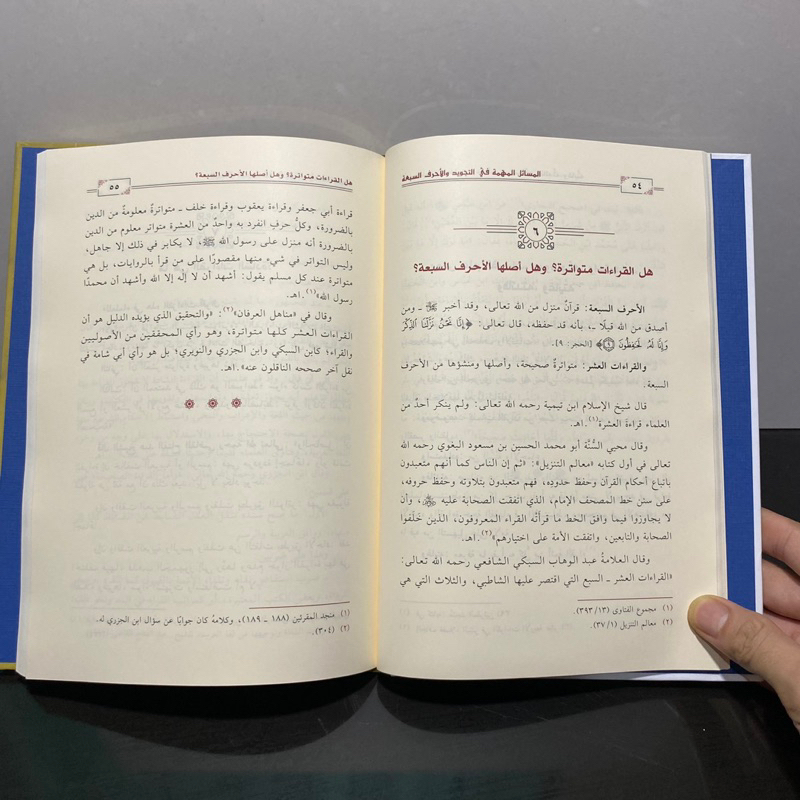 ٥٤
المسائل المهمة في التجويد والأحرف السبعة
٦
هل القراءات متواترة؟ وهل أصلها الأحرف السبعة؟
الأحرف السبعة: قرآنٌ منزل من الله تعالى، وقد أخبر ﷻ ـ ومن
أصدق من الله قيلًا ـ، بأنه قد حفظه، قال تعالى: ﴿إِنَّا نَحْنُ نَزَّلْنَا الذِّكْرَ
وَإِنَّا لَهُ لَحَافِظُونَ ۝٩﴾ [الحجر: ٩].
والقراءات العشر: متواترةٌ صحيحة، وأصلها ومنشؤها من الأحرف
السبعة.
قال شيخ الإسلام ابن تيمية رحمه الله تعالى: ولم ينكر أحدٌ من
العلماء قراءةَ العشرة(١).اهـ.
وقال محيي السُّنَّة أبو محمد الحسين بن مسعود البغوي رحمه الله
تعالى في أول كتابه «معالم التنزيل»: «ثم إن الناس كما أنهم متعبدون
باتباع أحكام القرآن وحفظ حدودِه، فهم متعبدون بتلاوته وحفظ حروفه،
على سنن خط المصحف الإمام، الذي اتفقت الصحابة عليه ﷺ، وأن
لا يجاوزوا فيما وافق الخط ما قرأَتْه القراء المعروفون، الذين خَلَفوا
الصحابة والتابعين، واتفقت الأمة على اختيارهم»(٢).اهـ.
وقال العلامةُ عبد الوهاب السبكي الشافعي رحمه الله تعالى:
«القراءات العشر ـ السبع التي اقتصر عليها الشاطبي، والثلاث التي هي
(١) مجموع الفتاوى (٣٩٣/١٣).
(٢) معالم التنزيل (٣٧/١).
هل القراءات متواترة؟ وهل أصلها الأحرف السبعة؟
٥٥
قراءة أبي جعفر وقراءة يعقوب وقراءة خلف ـ متواترةٌ معلومةٌ من الدين
بالضرورة، وكلُّ حرفٍ انفرد به واحدٌ من العشرة متواتر معلوم من الدين
بالضرورة أنه منزل على رسول الله ﷺ، لا يكابر في ذلك إلا جاهل،
وليس التواتر في شيء منها مقصورًا على من قرأ بالروايات، بل هي
متواترة عند كل مسلم يقول: أشهد أن لا إلٰه إلا الله وأشهد أن محمدًا
رسول الله»(١).اهـ.
وقال في «مناهل العرفان»(٢): «والتحقيق الذي يؤيده الدليل هو أن
القراءات العشر كلها متواترة، وهو رأي المحققين من الأصوليين
والقراء؛ كابن السبكي وابن الجزري والنويري؛ بل هو رأي أبي شامة في
نقل آخر صححه الناقلون عنه».اهـ.
(١) منجد المقرئين (١٨٨ ـ ١٨٩)، وكلامهُ كان جوابًا عن سؤال ابن الجزري له.
(٢) (٣٠٤).